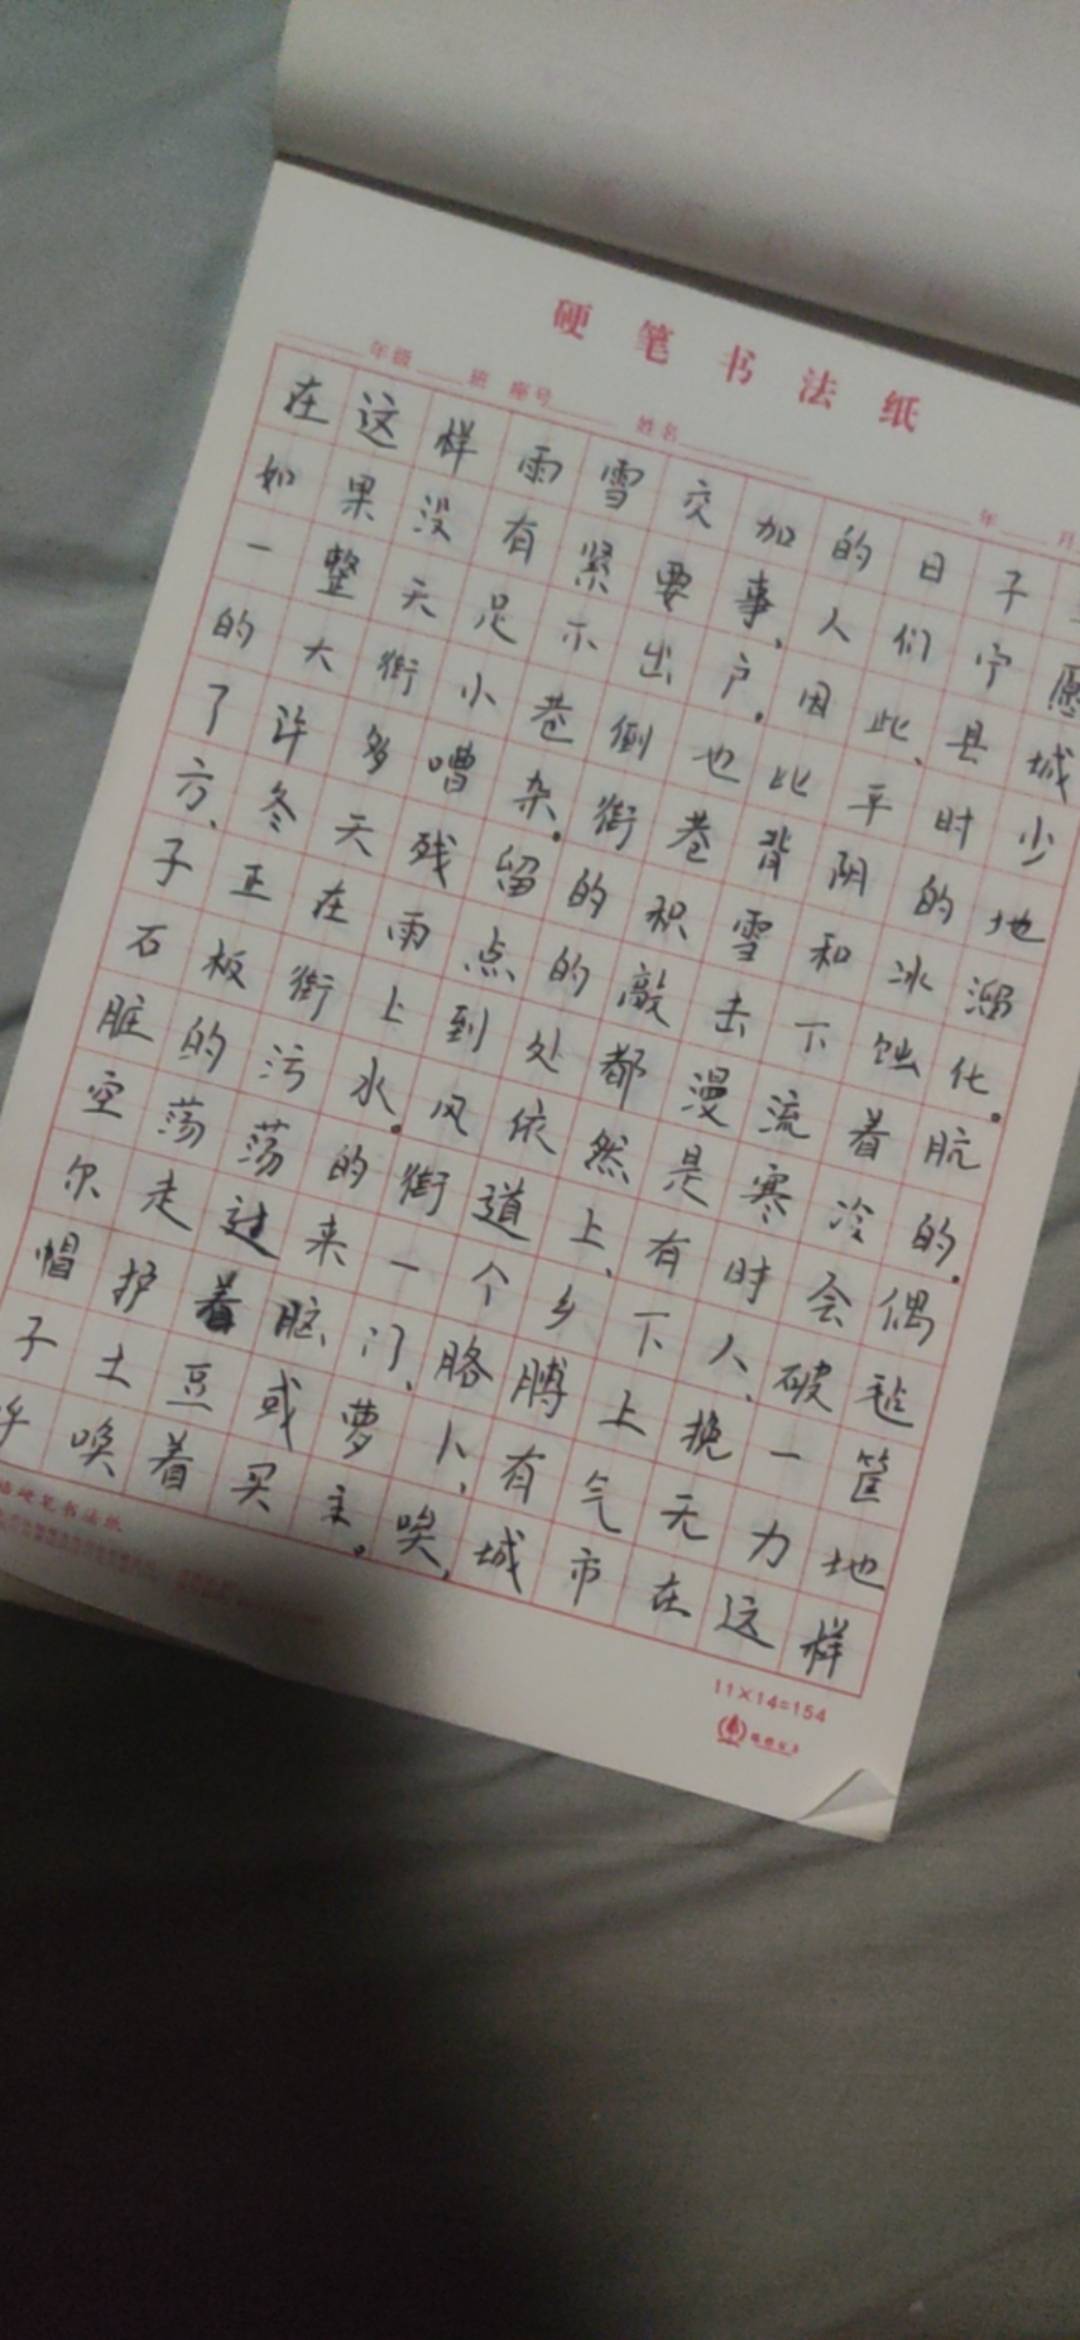 硬笔书法纸
年级 班 座号 姓名 年 月
在这样雨雪交加的日子
如果没有紧要事、人们宁愿
一整天足不出户。因此、县城
的大街小巷倒也比平时少
了许多嘈杂。街巷背阴的地
方、冬天残留的积雪和冰溜
子正在雨点的敲击下蚀化。
石板街上到处都漫流着肮
脏的污水。风依然是寒冷的。
空荡荡的街道上、有时会偶
尔走过来一个乡下人、破毡
帽护着脑门、胳膊上挽一筐
子土豆或萝卜、有气无力地
唤着买主。唉、城市在这样
硬笔书法纸
11×14=154